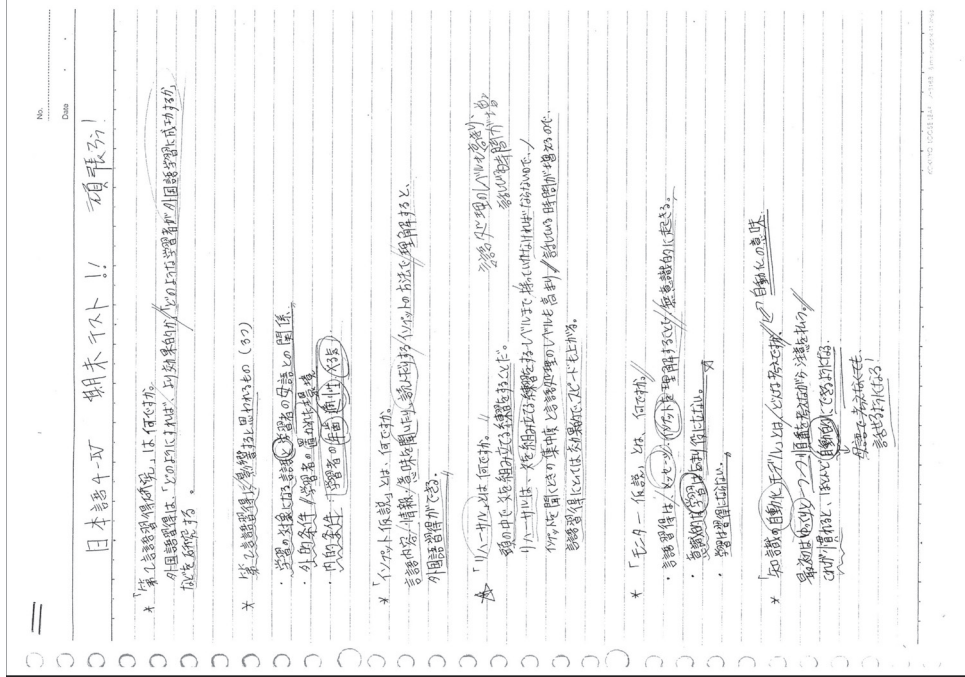 No.
Date
日本語4-IV 期末テスト!! 頑張ろう!
* 「第2言語習得研究」は何ですか。
外国語習得は、「どのようにすれば、より効果的か」「どのような学習者が外国語学習に成功するか」
などを研究する。
* 第2言語習得に影響すると思われるもの（3つ）
・学習の対象となる言語と学習者の母語との関係。
・外的条件/学習者の置かれた環境
・内的条件/学習者の年齢、適性、
* 「インプット仮説」とは、何ですか。
言語内容、情報/意味を聞いたり、読んだりする/インプットの方法で理解すると、
外国語習得ができる。
☆ 「リハーサル」とは何ですか。
頭の中で文を組み立てる練習をすることだ。
リハーサルは、文を組み立てる練習をするレベルまで持っていかなければならないので、
インプットを聞くときの集中度と言語処理のレベルも高まり/話している時間が増えるので、
言語習得にとっては効果的で、スピードも上がる。
言語処理のレベルも高まり、
話している時間が増
* 「モニター仮説」とは、何ですか。
・言語習得は/メッセージ/インプットを理解することで/無意識的に起きる。
・意識的な学習はあまり役に立たない。
・学習は習得にならない。
* 「知識の自動化モデル」とは、どんな考えですか。
自動化の意味
最初はゆっくり一つ一つ順番を考えながら注意を払う。
これが慣れると、ほとんど自動的にできるようになる。
考えなくても、
話せるようになる!